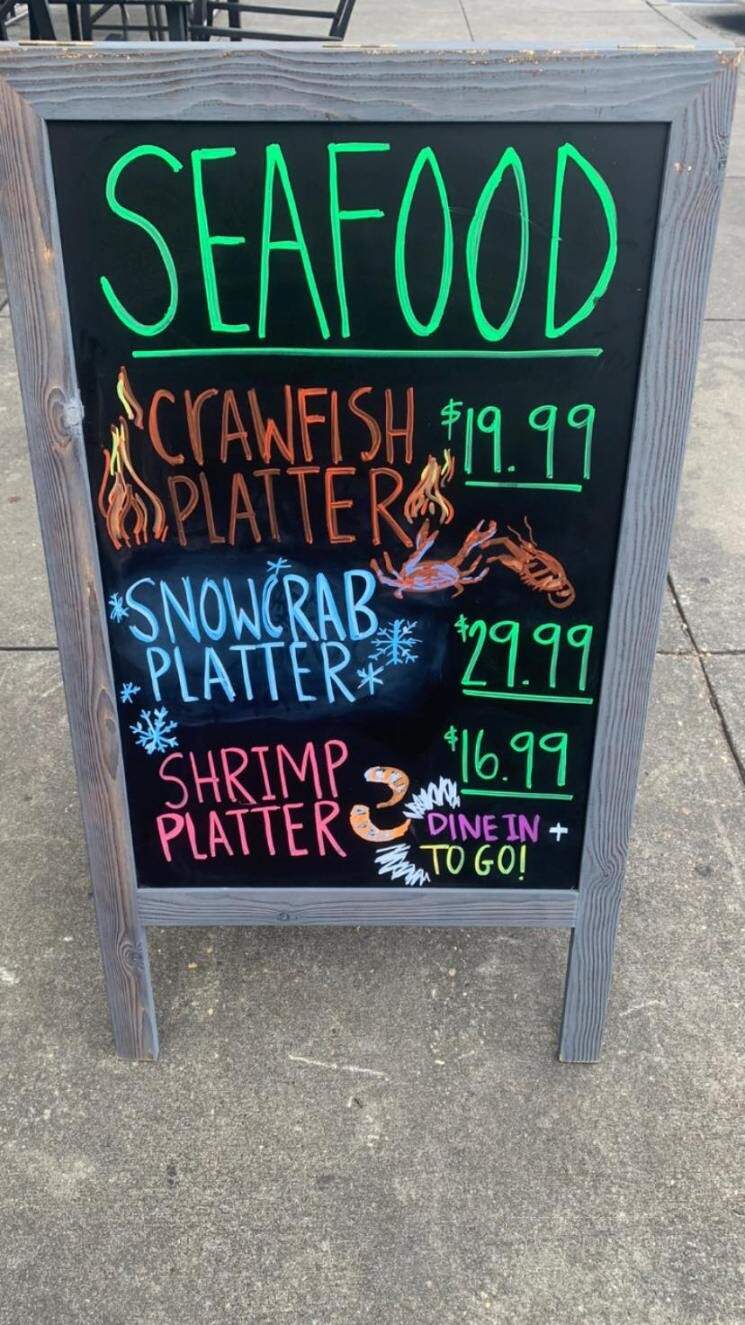 SEAFOOD
CRAWFISH
PLATTER
$19.99
SNOWCRAB
PLATTER
$29.99
SHRIMP
PLATTER
$16.99
DINE IN +
TO GO!